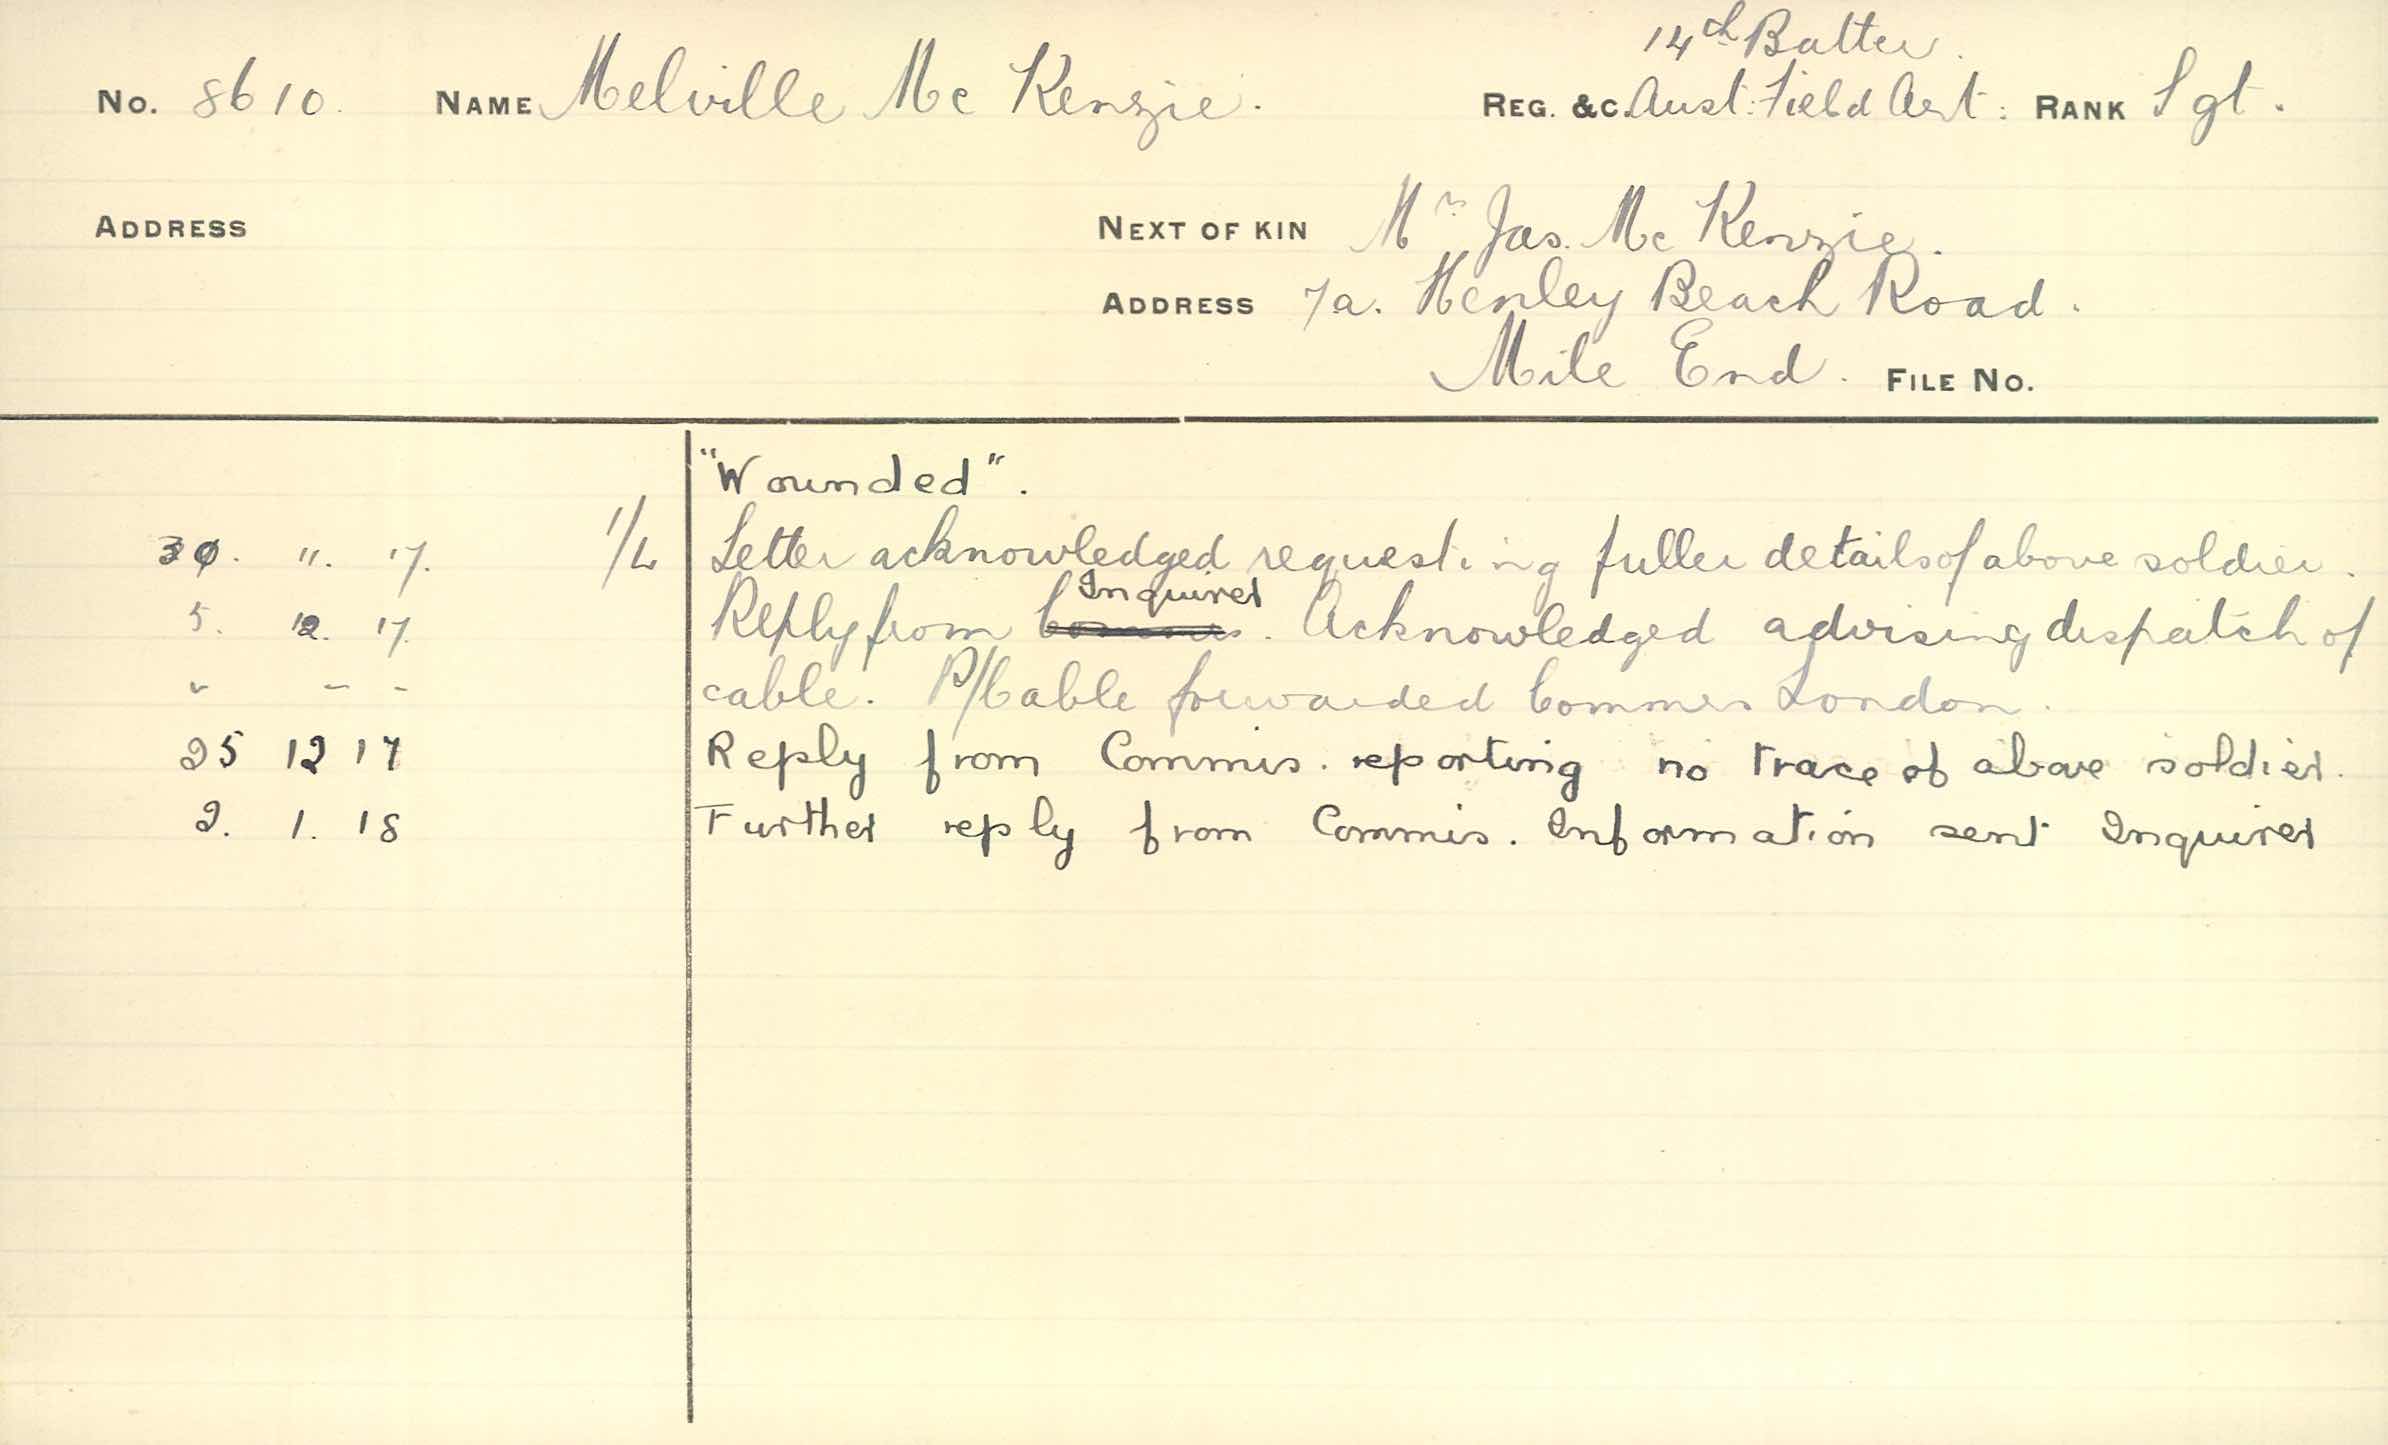 14th Batter.
No. 8610. NAME Melville Mc Kenzie. REG. &C. Aust: Field Art: RANK Sgt.
ADDRESS NEXT OF KIN Mrs Jas. Mc Kenzie.
ADDRESS 7a. Henley Beach Road.
Mile End. FILE No.
"Wounded".
30. 11. 17. 1/L Letter acknowledged requesting fuller details of above soldier.
Inquirer
5. 12. 17. Reply from Commis. Acknowledged advising dispatch of
" - - cable. P/Cable forwarded Commis London.
25 12 17 Reply from Commis. reporting no trace of above soldier.
2. 1. 18 Further reply from Commis. Information sent Inquirer